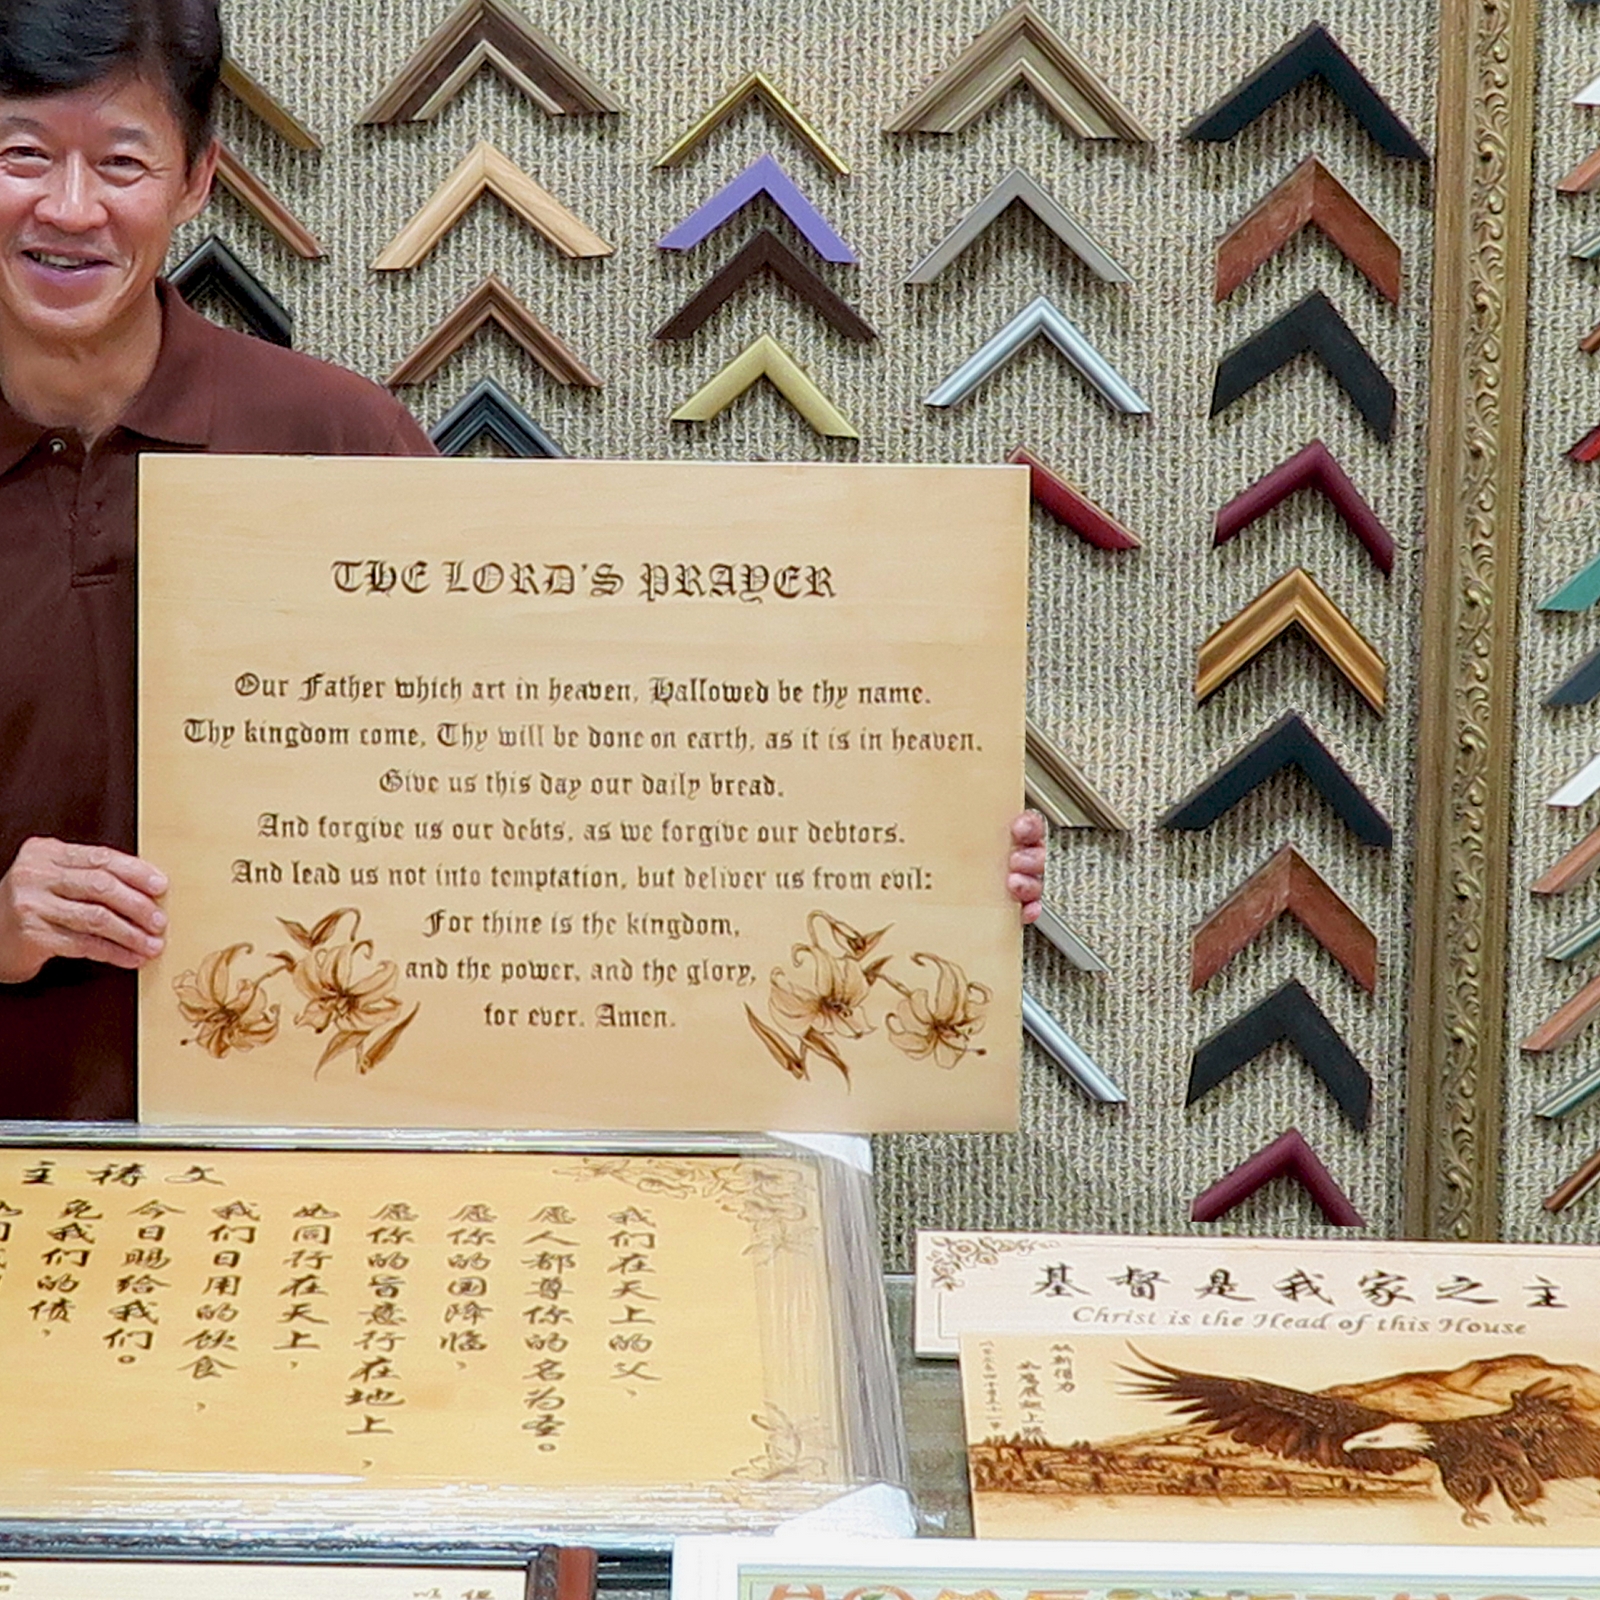 THE LORD'S PRAYER
Our Father which art in heaven, Hallowed be thy name.
Thy kingdom come, Thy will be done on earth, as it is in heaven.
Give us this day our daily bread.
And forgive us our debts, as we forgive our debtors.
And lead us not into temptation, but deliver us from evil:
For thine is the kingdom,
and the power, and the glory,
for ever. Amen.
主祷文
我们在天上的父，
愿人都尊你的名为圣。
愿你的国降临，
愿你的旨意行在地上，
如同行在天上，
我们日用的饮食，
今日赐给我们。
免我们的债，
基督是我家之主
Christ is the Head of this House